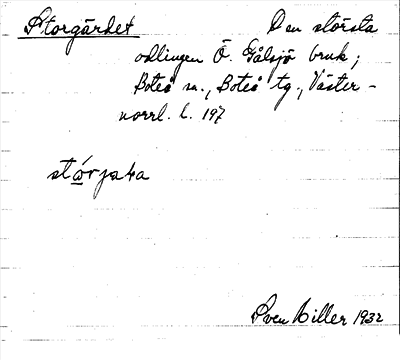 Storgärdet Den största
odlingen Ö. Gålsjö bruk;
Boteå sn., Boteå tg., Väster-
norrl. l. 197
Sven Hiller 1932